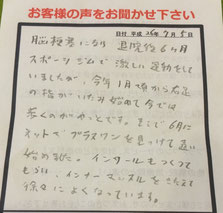 お客様の声をお聞かせ下さい
日付 平成26年7月5日
脳梗塞になり 退院後6ヶ月
スポーツジムで激しい運動をして
いましたが 今年1月頃から右足
の指がいたみ始めて今では
歩くのがやっとです。そこで6月に
ネットでプラスワンを見つけて通い
始めました。インソールもつくって
もらい、インナーマッスルをきたえて
徐々によくなっています。